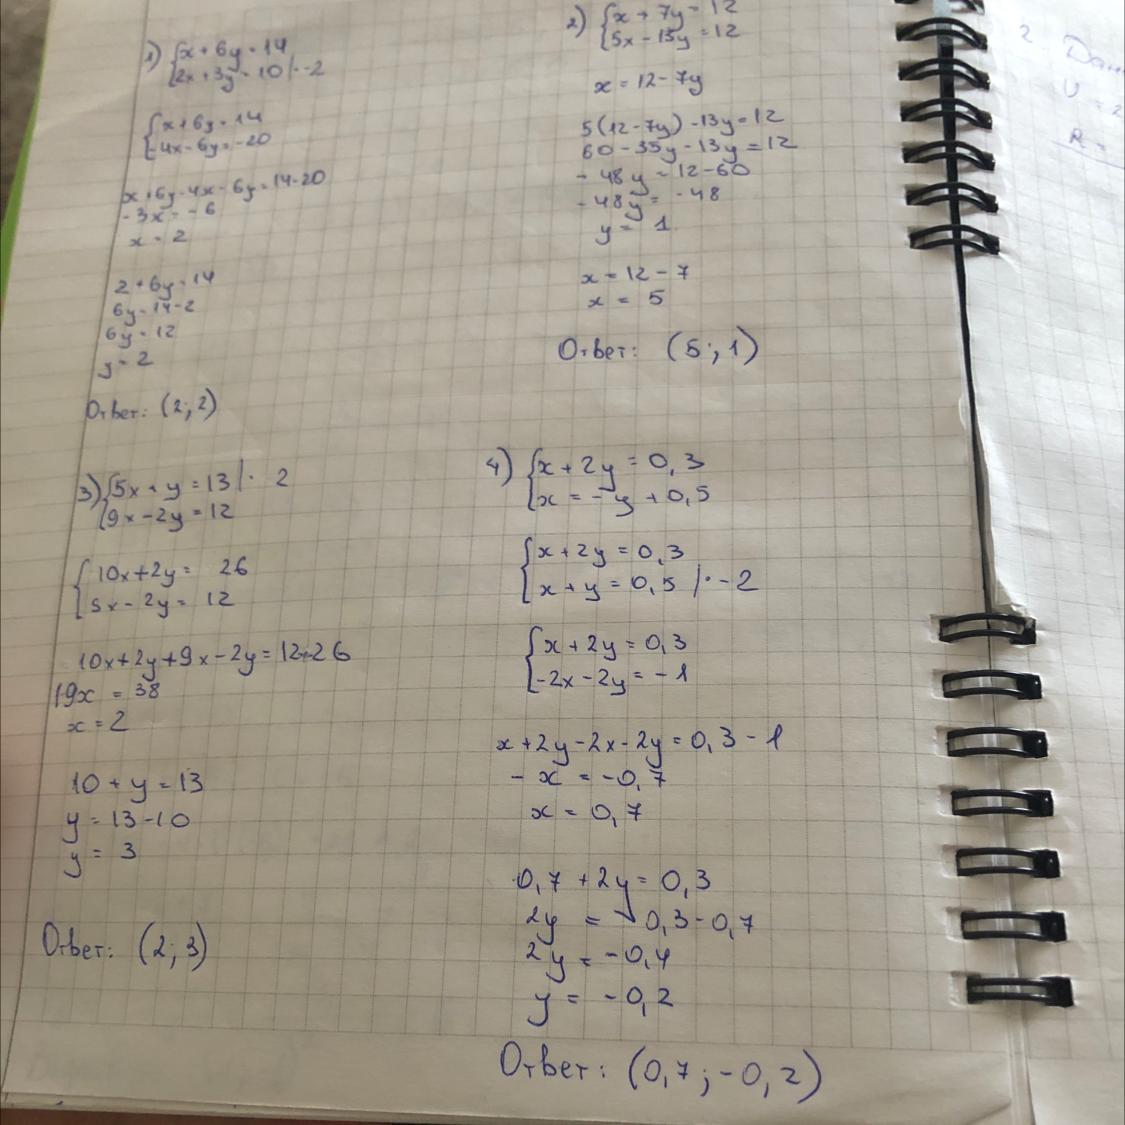 1) {x + 6y = 14
2x + 3y = 10 | · -2
{x + 6y = 14
-4x - 6y = -20
x + 6y - 4x - 6y = 14 - 20
- 3x = - 6
x = 2
2 + 6y = 14
6y = 14 - 2
6y = 12
y = 2
Ответ: (2; 2)
2) {x + 7y = 12
5x - 13y = 12
x = 12 - 7y
5(12 - 7y) - 13y = 12
60 - 35y - 13y = 12
- 48y = 12 - 60
- 48y = -48
y = 1
x = 12 - 7
x = 5
Ответ: (5; 1)
3) {5x + y = 13 | · 2
9x - 2y = 12
{10x + 2y = 26
5x - 2y = 12
10x + 2y + 9x - 2y = 12 + 26
19x = 38
x = 2
10 + y = 13
y = 13 - 10
y = 3
Ответ: (2; 3)
4) {x + 2y = 0,3
x = - y + 0,5
{x + 2y = 0,3
x + y = 0,5 | · -2
{x + 2y = 0,3
-2x - 2y = - 1
x + 2y - 2x - 2y = 0,3 - 1
- x = -0,7
x = 0,7
0,7 + 2y = 0,3
2y = 0,3 - 0,7
2y = -0,4
y = -0,2
Ответ: (0,7; -0,2)
2
U = 2
R =